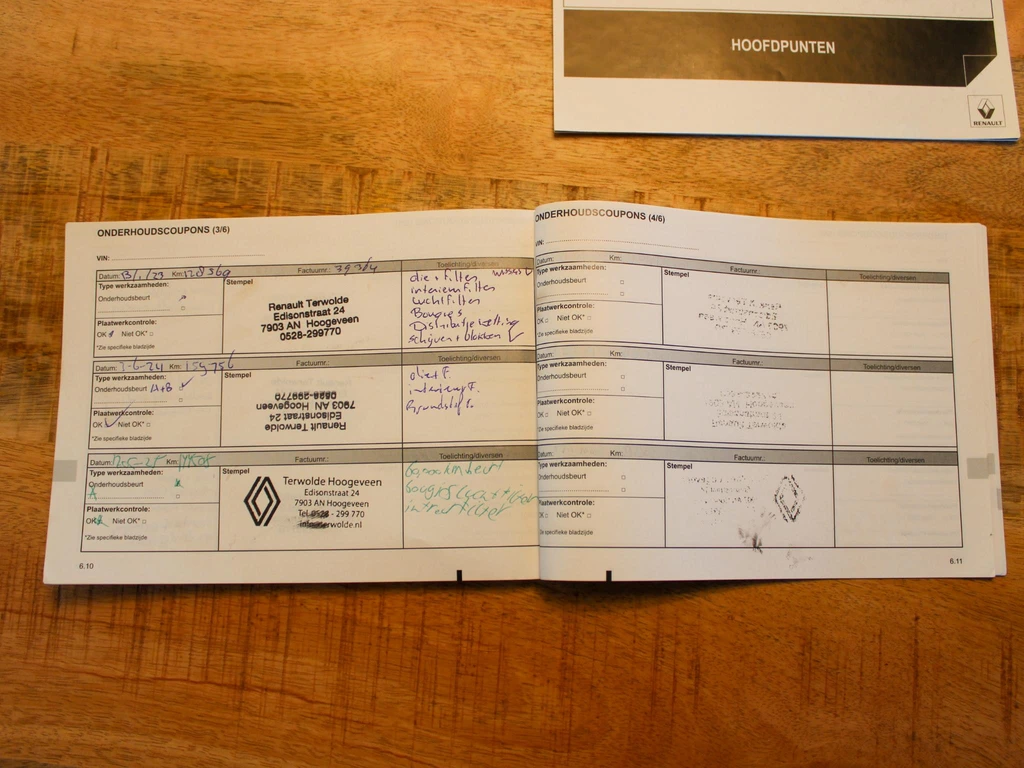 HOOFDPUNTEN
RENAULT
ONDERHOUDSCOUPONS (3/6)
VIN:
Datum: Km: 128369 Factuurnr.: Toelichting/diversen
Type werkzaamheden:
Onderhoudsbeurt
Stempel
Renault Terwolde
Edisonstraat 24
7903 AN Hoogeveen
0528-299770
olie + filter
interieurfilter
luchtfilter
Bougies
Distributieketting
schijven + blokken
Plaatwerkcontrole:
OK Niet OK*
*Zie specifieke bladzijde
Datum: 7-6-24 Km: 159756 Factuurnr.: Toelichting/diversen
Type werkzaamheden:
Onderhoudsbeurt A+B
Stempel
Renault Terwolde
Edisonstraat 24
7903 AN Hoogeveen
0528-299770
olie + F.
interieur F.
Brandstof F.
Plaatwerkcontrole:
OK Niet OK*
*Zie specifieke bladzijde
Datum: Km: Factuurnr.: Toelichting/diversen
Type werkzaamheden:
Onderhoudsbeurt
A
Stempel
Terwolde Hoogeveen
Edisonstraat 24
7903 AN Hoogeveen
Tel. 0528 - 299 770
terwolde.nl
Plaatwerkcontrole:
OK Niet OK*
*Zie specifieke bladzijde
6.10
ONDERHOUDSCOUPONS (4/6)
VIN:
Datum: Km: Factuurnr.: Toelichting/diversen
Type werkzaamheden:
Onderhoudsbeurt
Stempel
Plaatwerkcontrole:
OK Niet OK*
*Zie specifieke bladzijde
Datum: Km: Factuurnr.: Toelichting/diversen
Type werkzaamheden:
Onderhoudsbeurt
Stempel
Plaatwerkcontrole:
OK Niet OK*
*Zie specifieke bladzijde
Datum: Km: Factuurnr.: Toelichting/diversen
Type werkzaamheden:
Onderhoudsbeurt
Stempel
Plaatwerkcontrole:
OK Niet OK*
*Zie specifieke bladzijde
6.11